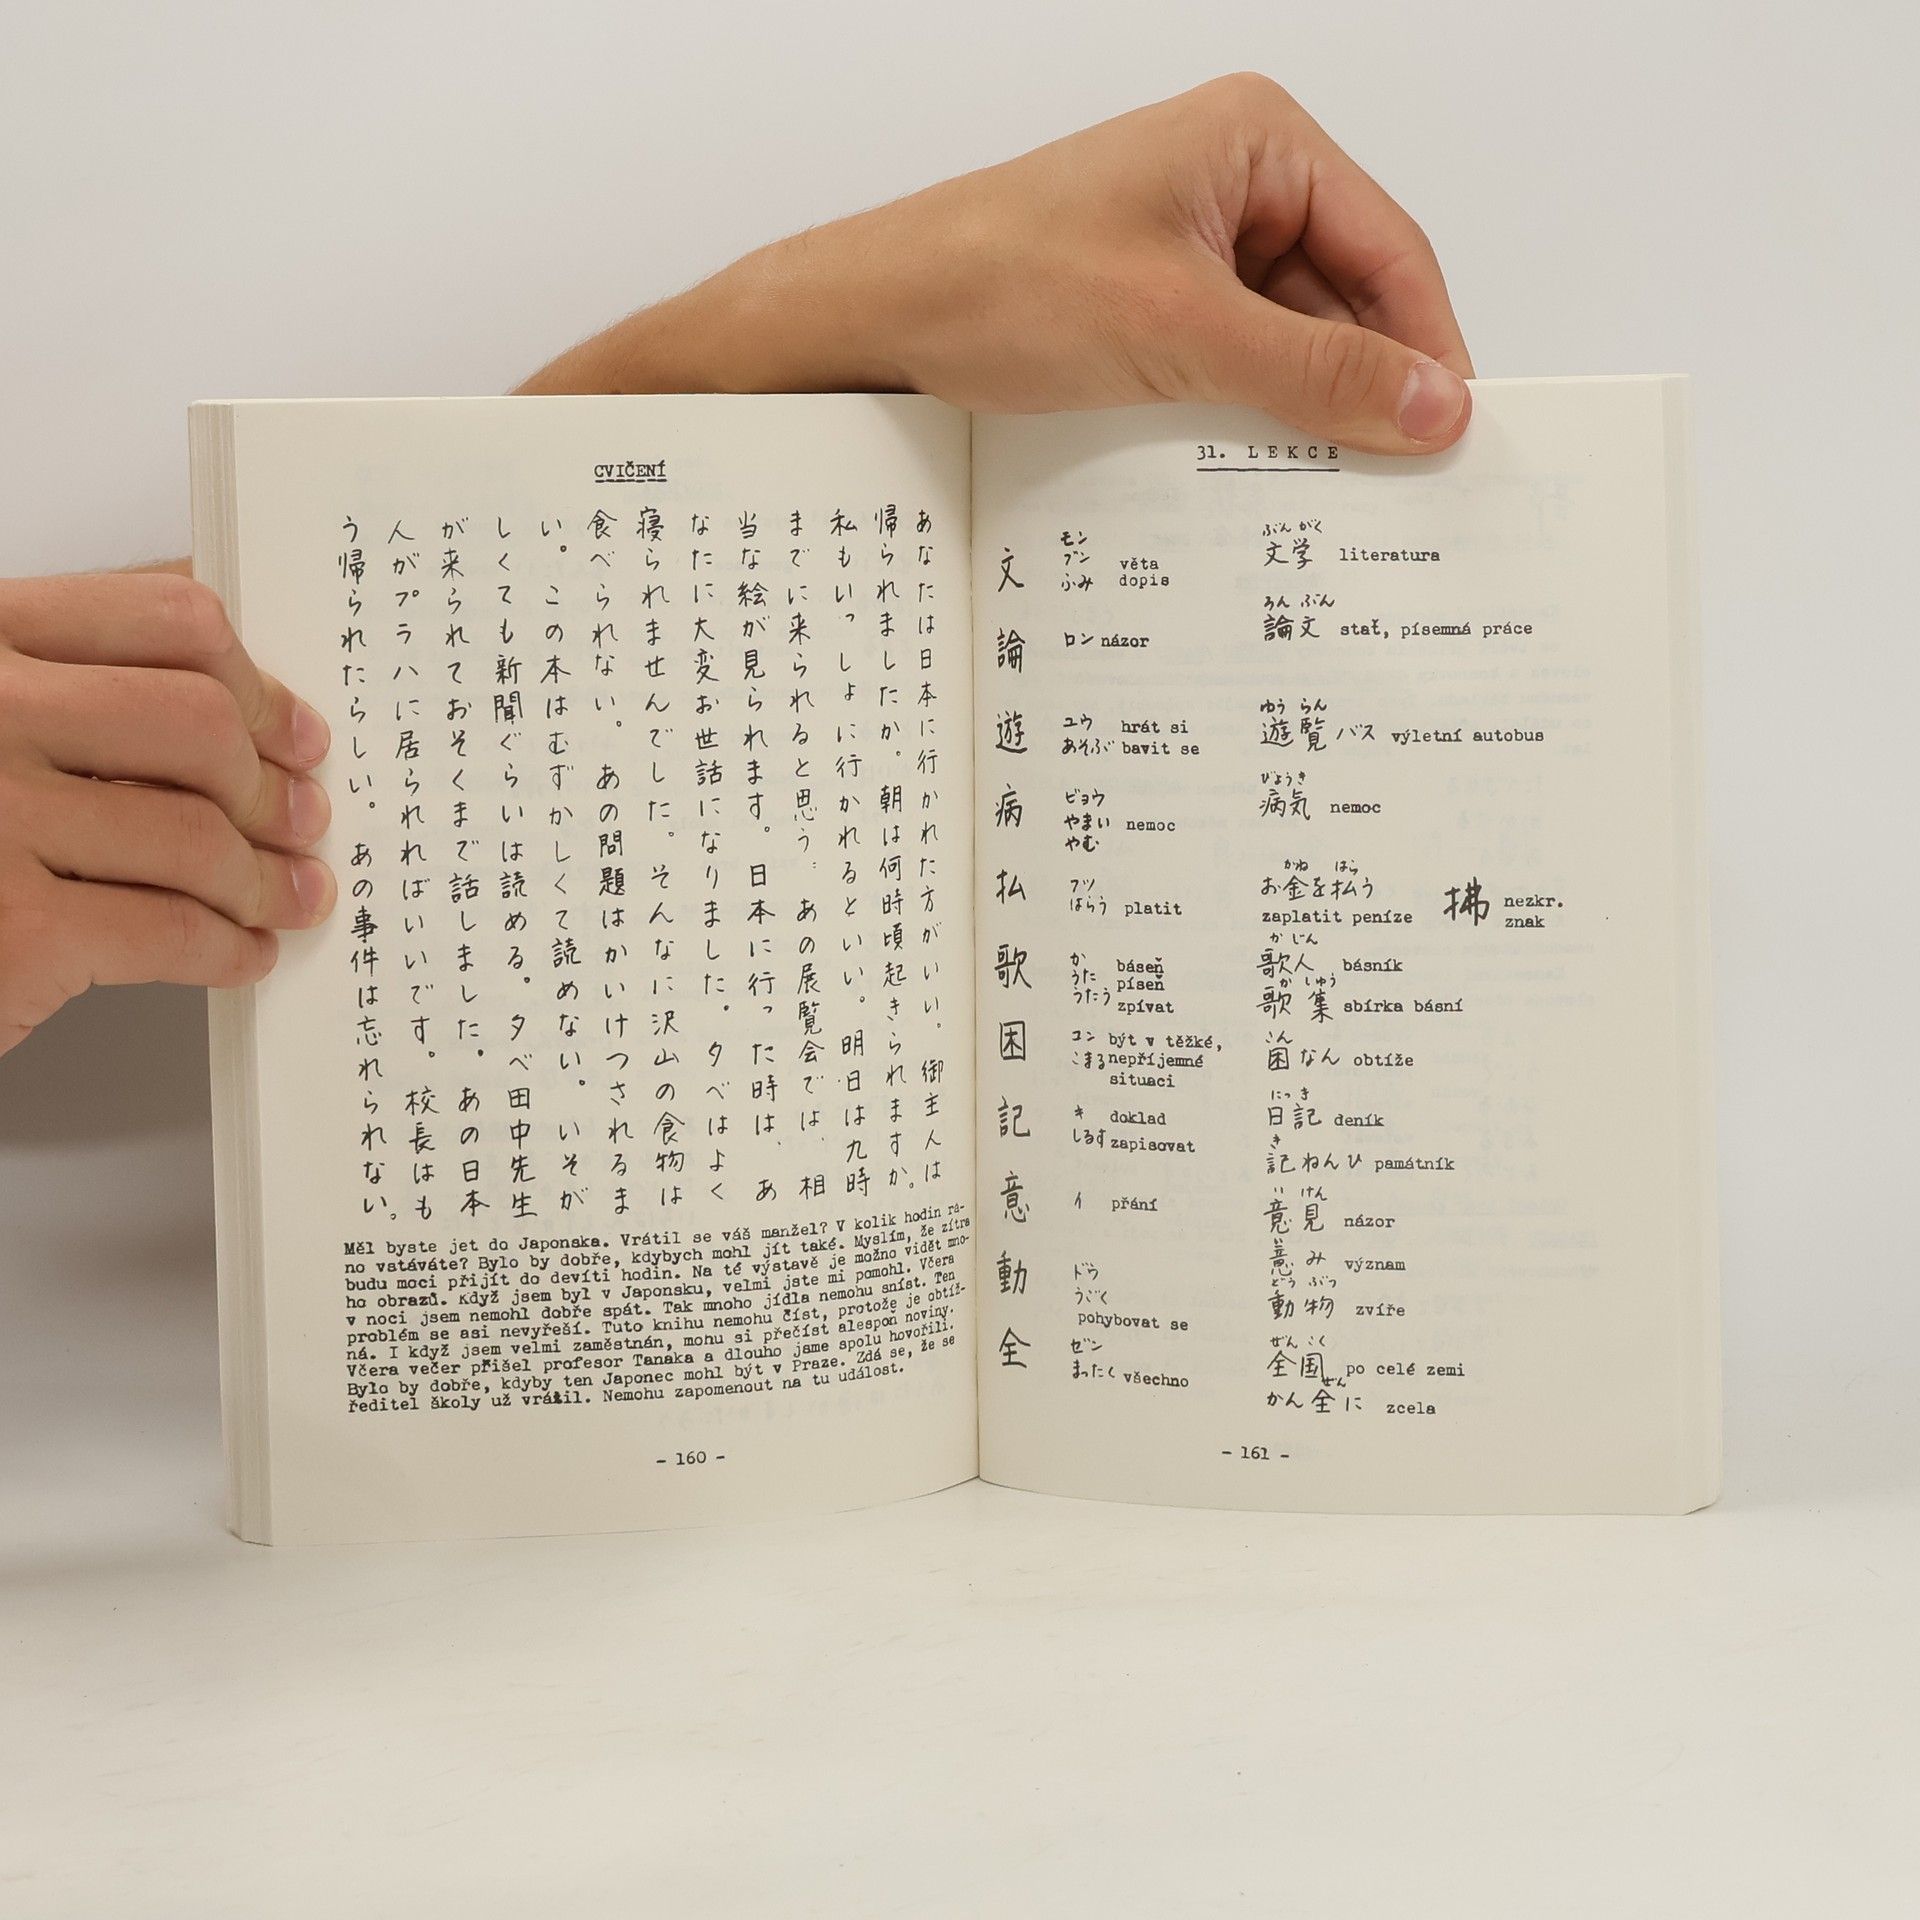 CVIČENÍ
あなたは日本に行かれた方がいい。御主人は
帰られましたか。朝は何時頃起きられますか。
私もいっしょに行かれるといい。明日は九時
までに来られると思う。あの展覧会では、相
当な絵が見られます。日本に行った時は、あ
なたに大変お世話になりました。夕べはよく
寝られませんでした。そんなに沢山の食物は
食べられない。あの問題はかいけつされるま
い。この本はむずかしくて読めない。いそが
しくても新聞ぐらいは読める。夕べ田中先生
が来られておそくまで話しました。あの日本
人がプラハに居られればいいです。校長はも
う帰られたらしい。あの事件は忘れられない。
Měl byste jet do Japonska. Vrátil se váš manžel? V kolik hodin rá-
no vstáváte? Bylo by dobře, kdybych mohl jít také. Myslím, že zítra
budu moci přijít do devíti hodin. Na té výstavě je možno vidět mno-
ho obrazů. Když jsem byl v Japonsku, velmi jste mi pomohl. Včera
v noci jsem nemohl dobře spát. Tak mnoho jídla nemohu sníst. Ten
problém se asi nevyřeší. Tuto knihu nemohu číst, protože je obtíž-
ná. I když jsem velmi zaměstnán, mohu si přečíst alespoň noviny.
Včera večer přišel profesor Tanaka a dlouho jsme spolu hovořili.
Bylo by dobře, kdyby ten Japonec mohl být v Praze. Zdá se, že se
ředitel školy už vrátil. Nemohu zapomenout na tu událost.
- 160 -
31. LEKCE
文 モン
ブン věta
ふみ dopis
ぶん がく
文学 literatura
ろん ぶん
論文 stať, písemná práce
論 ロン názor
遊 ユウ hrát si
あそぶ bavit se
ゆう らん
遊覧バス výletní autobus
病 ビョウ
やまい nemoc
やむ
びょうき
病気 nemoc
払 フツ
はらう platit
かね はら
お金を払う 拂 nezkr.
zaplatit peníze znak
歌 か báseň
うた píseň
うたう zpívat
か じん
歌人 básník
か しゅう
歌集 sbírka básní
困 コン být v těžké,
こまる nepříjemné
situaci
こん
困なん obtíže
記 キ doklad
しるす zapisovat
にっ き
日記 deník
き
記ねんひ památník
意 イ přání
い けん
意見 názor
い
意み význam
動 ドウ
うごく
pohybovat se
どう ぶつ
動物 zvíře
全 ゼン
まったく všechno
ぜん こく
全国 po celé zemi
ぜん
かん全に zcela
- 161 -